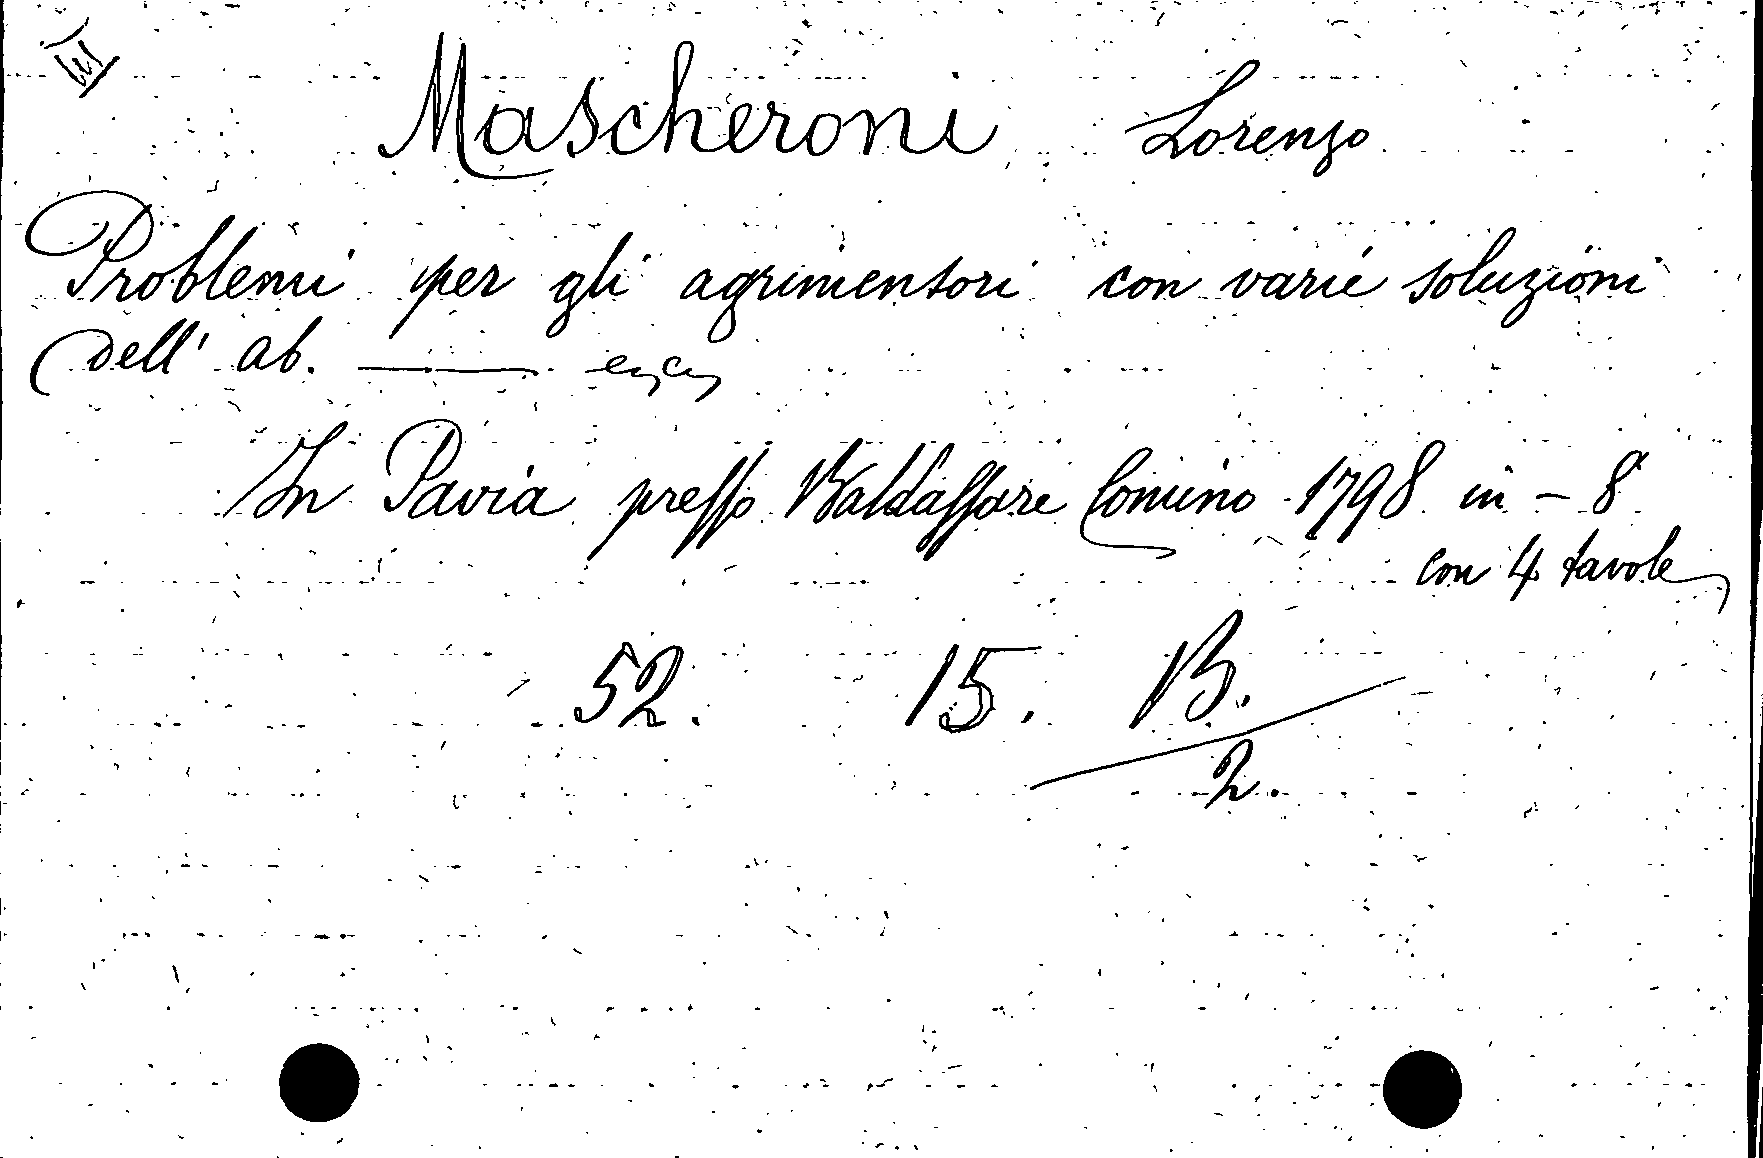 Mascheroni Lorenzo
Problemi per gli agrimensori con varie soluzioni
dell' ab. ———
In Pavia presso Baldassare Comino 1798 in - 8°
con 4 tavole
52. 15. B.
2.